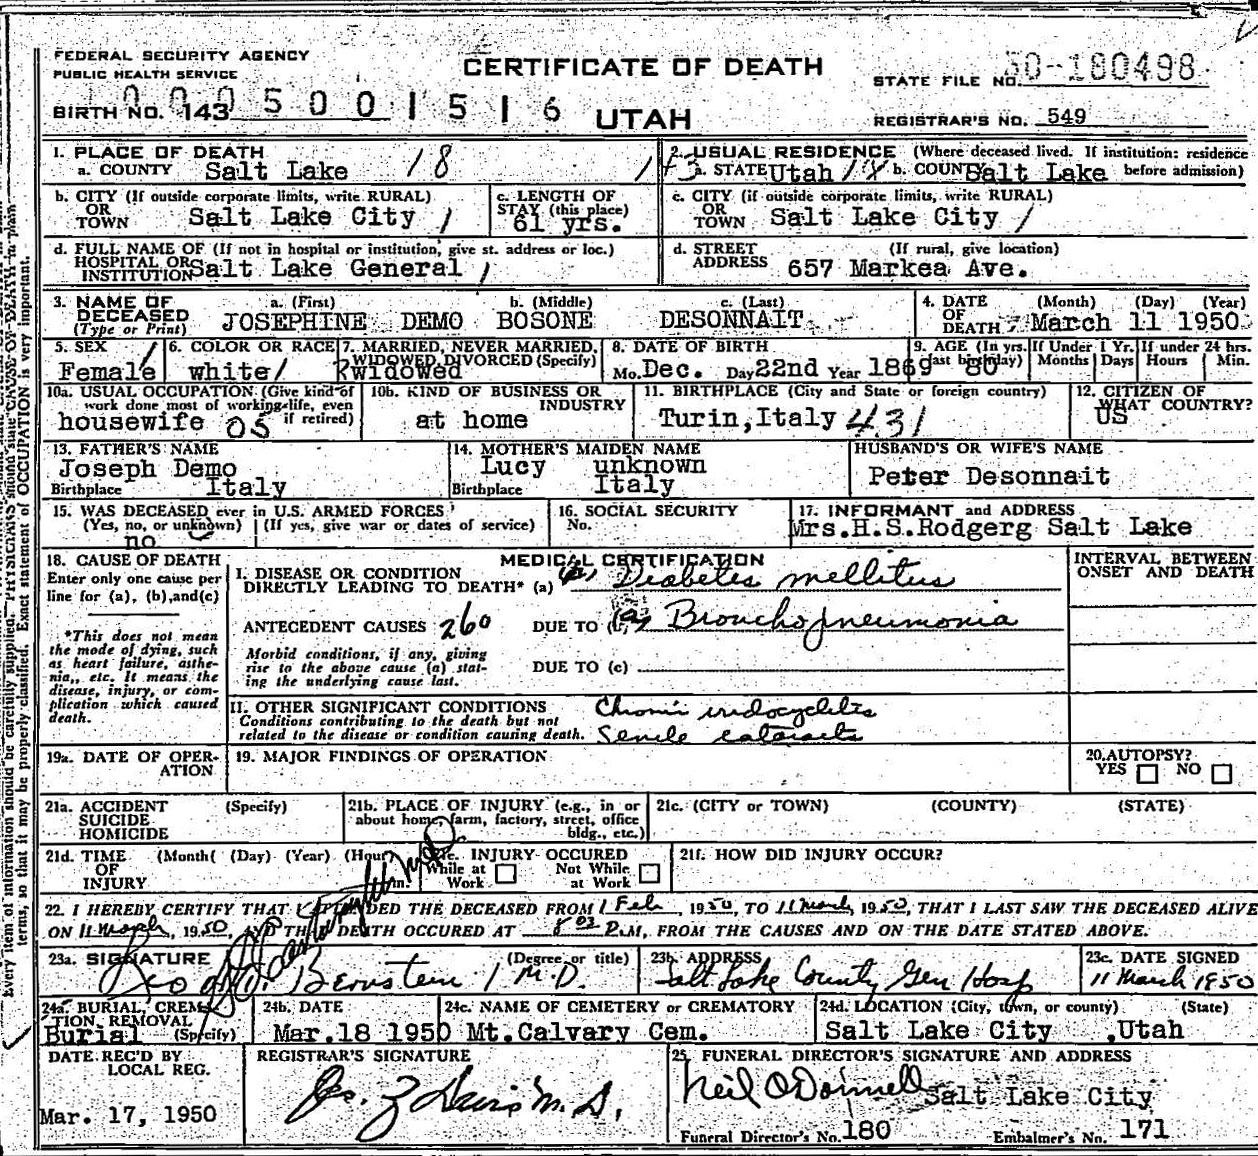 FEDERAL SECURITY AGENCY
PUBLIC HEALTH SERVICE
CERTIFICATE OF DEATH
STATE FILE NO. 50-180498
BIRTH NO. 143 0005001516
UTAH
REGISTRAR'S NO. 549
1. PLACE OF DEATH
a. COUNTY Salt Lake 18
143
2. USUAL RESIDENCE (Where deceased lived. If institution: residence
a. STATE Utah 18 b. COUN Salt Lake before admission)
b. CITY (If outside corporate limits, write RURAL)
OR
TOWN Salt Lake City 1
c. LENGTH OF
STAY (this place)
61 yrs.
c. CITY (if outside corporate limits, write RURAL)
OR
TOWN Salt Lake City 1
d. FULL NAME OF (If not in hospital or institution, give st. address or loc.)
HOSPITAL OR
INSTITUTION Salt Lake General 1
d. STREET (If rural, give location)
ADDRESS 657 Markea Ave.
3. NAME OF
DECEASED
(Type or Print)
a. (First) b. (Middle) c. (Last)
JOSEPHINE DEMO BOSONE DESONNAIT
4. DATE (Month) (Day) (Year)
OF
DEATH March 11 1950
5. SEX
Female
6. COLOR OR RACE
white
7. MARRIED, NEVER MARRIED,
WIDOWED, DIVORCED (Specify)
widowed
8. DATE OF BIRTH
Mo. Dec. Day 22nd Year 1869
9. AGE (In yrs. last birthday) 80
If Under 1 Yr. Months Days
If under 24 hrs. Hours Min.
10a. USUAL OCCUPATION (Give kind of
work done most of working life, even
if retired)
housewife 05
10b. KIND OF BUSINESS OR
INDUSTRY
at home
11. BIRTHPLACE (City and State or foreign country)
Turin, Italy 431
12. CITIZEN OF
WHAT COUNTRY?
US
13. FATHER'S NAME
Joseph Demo
Birthplace Italy
14. MOTHER'S MAIDEN NAME
Lucy unknown
Birthplace Italy
HUSBAND'S OR WIFE'S NAME
Peter Desonnait
15. WAS DECEASED ever in U.S. ARMED FORCES
(Yes, no, or unknown) (If yes, give war or dates of service)
no
16. SOCIAL SECURITY
No.
17. INFORMANT and ADDRESS
Mrs.H.S.Rodgerg Salt Lake
18. CAUSE OF DEATH
Enter only one cause per
line for (a), (b), and (c)
*This does not mean
the mode of dying, such
as heart failure, asthe-
nia, etc. It means the
disease, injury, or com-
plication which caused
death.
MEDICAL CERTIFICATION
I. DISEASE OR CONDITION
DIRECTLY LEADING TO DEATH* (a) Diabetes mellitus
ANTECEDENT CAUSES 260 DUE TO (a) Bronchopneumonia
Morbid conditions, if any, giving
rise to the above cause (a) stat-
ing the underlying cause last.
DUE TO (c)
INTERVAL BETWEEN
ONSET AND DEATH
II. OTHER SIGNIFICANT CONDITIONS
Conditions contributing to the death but not
related to the disease or condition causing death.
Chronic iridocyclitis
Senile cataracts
19a. DATE OF OPER-
ATION
19. MAJOR FINDINGS OF OPERATION
20. AUTOPSY?
YES NO
21a. ACCIDENT (Specify)
SUICIDE
HOMICIDE
21b. PLACE OF INJURY (e.g., in or
about home, farm, factory, street, office
bldg., etc.)
21c. (CITY or TOWN) (COUNTY) (STATE)
21d. TIME (Month) (Day) (Year) (Hour)
OF
INJURY m.
21e. INJURY OCCURED
While at Work Not While at Work
21f. HOW DID INJURY OCCUR?
22. I HEREBY CERTIFY THAT I ATTENDED THE DECEASED FROM 1 Feb, 1950, TO 11 March, 1950, THAT I LAST SAW THE DECEASED ALIVE
ON 11 March, 1950, AND THAT DEATH OCCURED AT 8 03 P.M., FROM THE CAUSES AND ON THE DATE STATED ABOVE.
23a. SIGNATURE (Degree or title)
Bernstein M.D.
23b. ADDRESS
Salt Lake County Gen Hosp
23c. DATE SIGNED
11 March 1950
24a. BURIAL, CREMA-
TION, REMOVAL
(Specify)
Burial
24b. DATE
Mar. 18 1950
24c. NAME OF CEMETERY or CREMATORY
Mt. Calvary Cem.
24d. LOCATION (City, town, or county) (State)
Salt Lake City, Utah
DATE REC'D BY
LOCAL REG.
Mar. 17, 1950
REGISTRAR'S SIGNATURE
25. FUNERAL DIRECTOR'S SIGNATURE AND ADDRESS
Neil O'Donnell Salt Lake City
Funeral Director's No. 180 Embalmer's No. 171
Every item of information should be carefully supplied. PHYSICIANS should state CAUSE OF DEATH in plain
terms, so that it may be properly classified. Exact statement of OCCUPATION is very important.